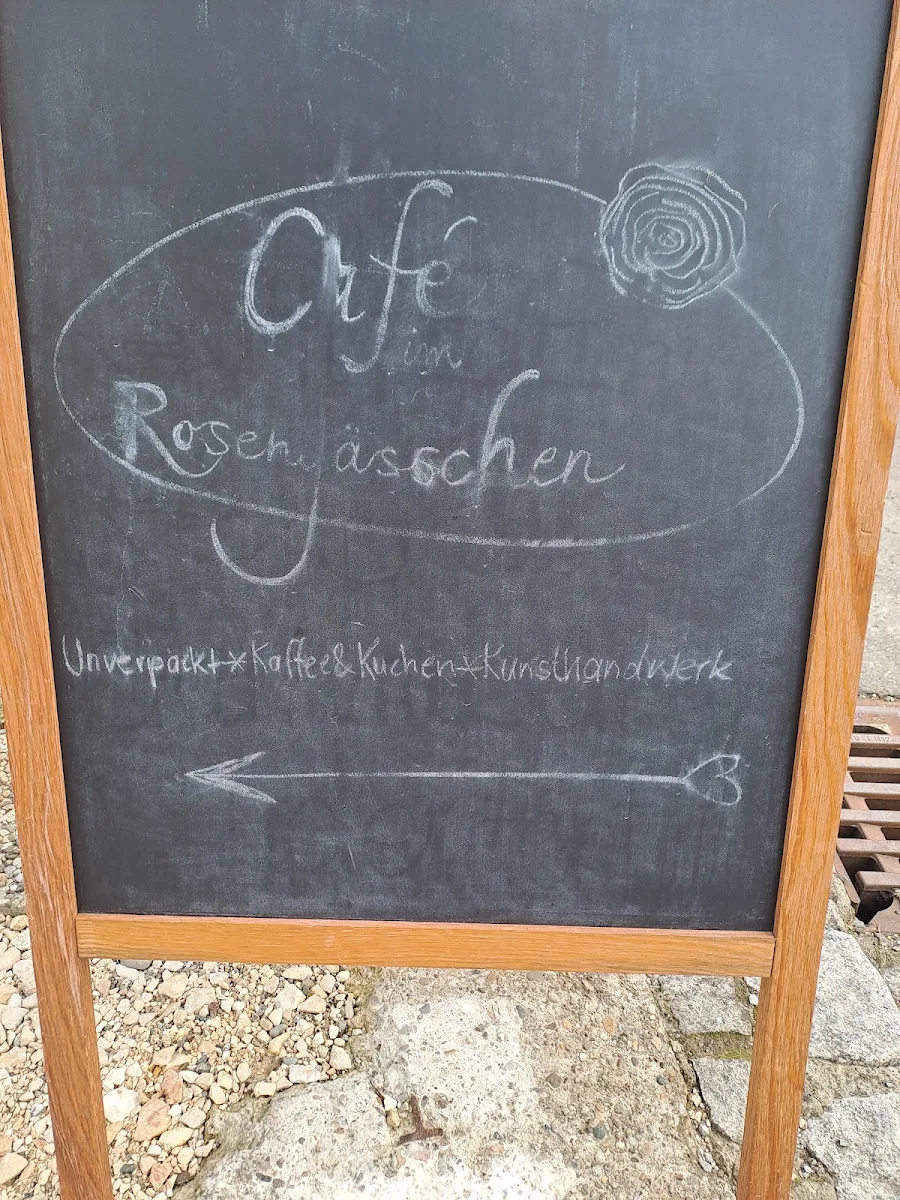 Café
im
Rosengässchen
Unverpackt*Kaffee&Kuchen*Kunsthandwerk